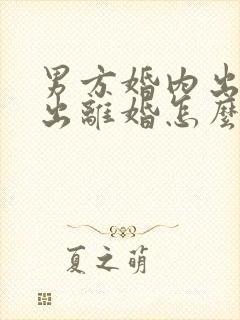 男方婚内出
出離婚怎麼
夏之萌